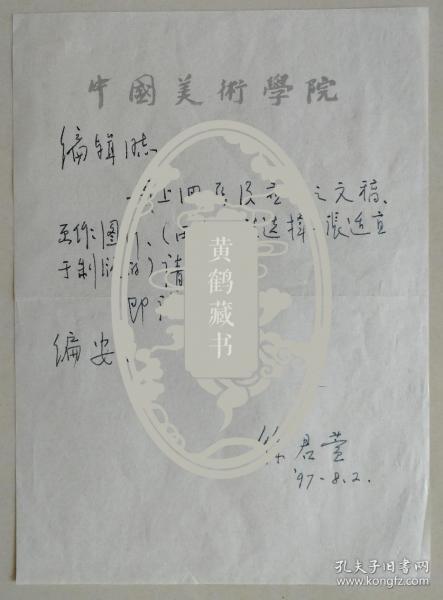 中國美術學院
编辑同志
上四 之文稿、
工作图片、(四 选择一张适宜
于制版的)请
即
编安.
徐君萱
'97-8.2.
黄鹤藏书
孔夫子旧书网
www.kongfz.com